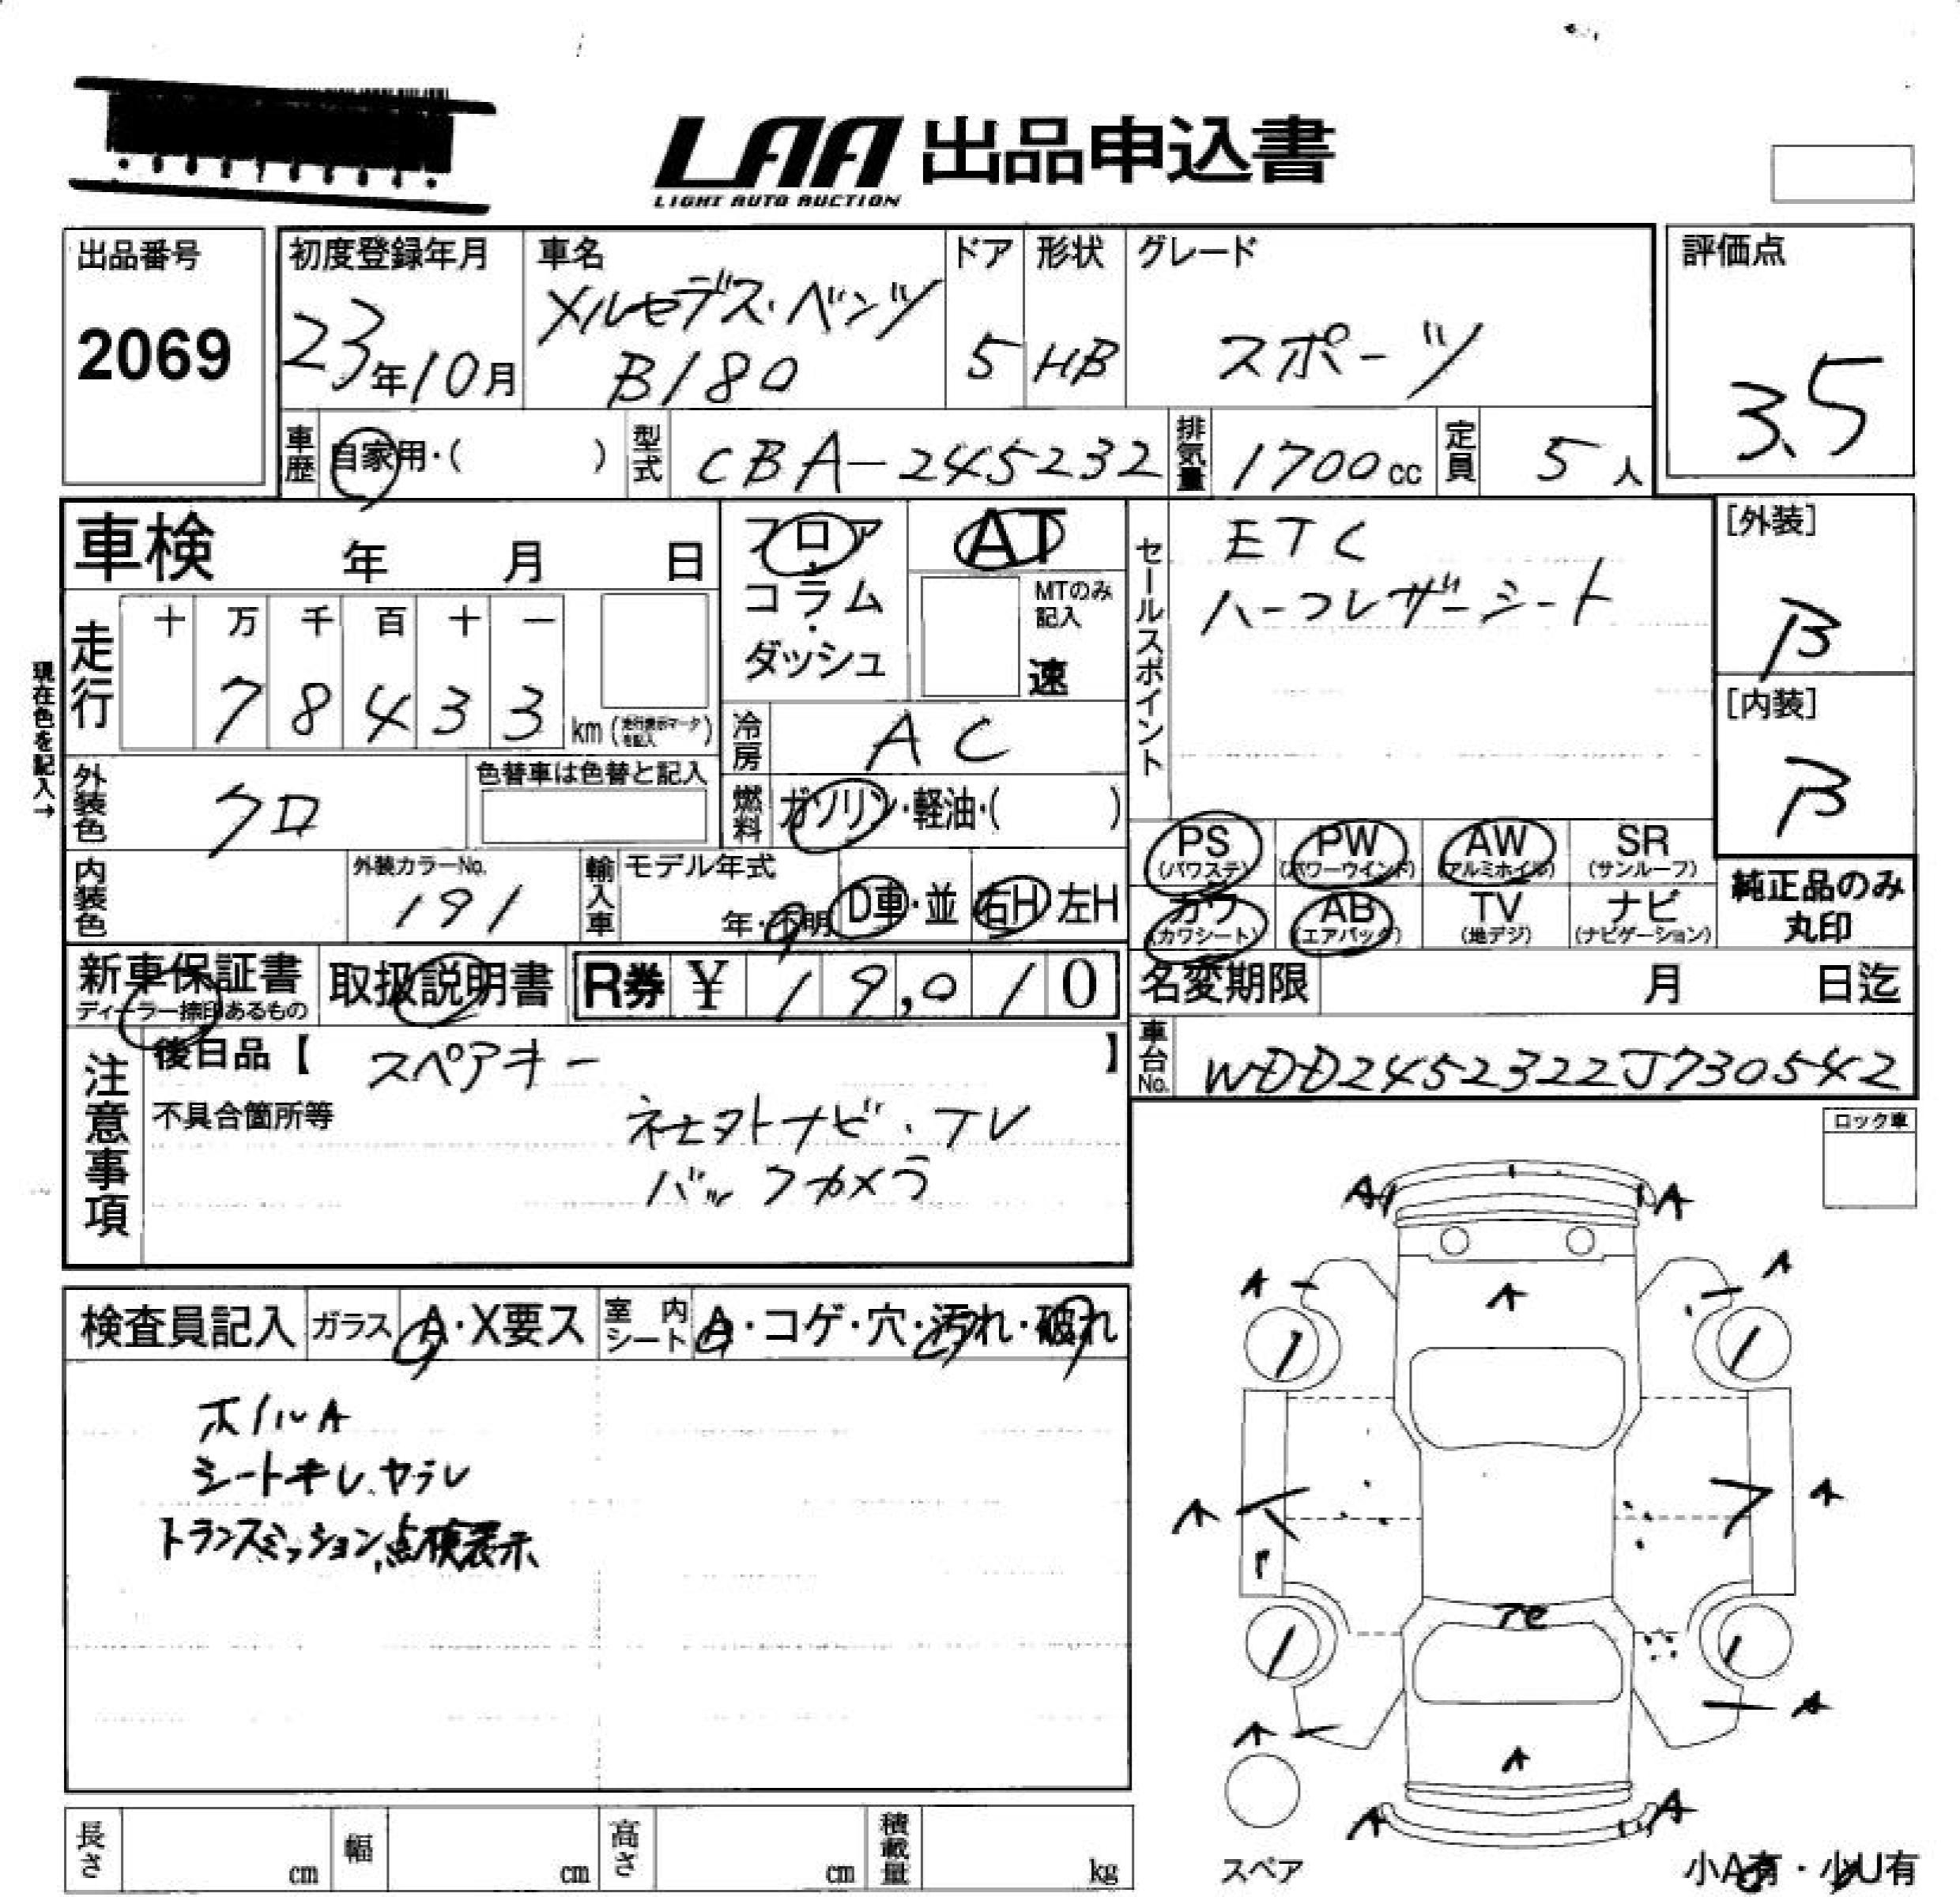 LAA 出品申込書
LIGHT AUTO AUCTION
出品番号
2069
初度登録年月
23年10月
車名
メルセデス・ベンツ
B180
ドア
5
形状
HB
グレード
スポーツ
評価点
3.5
車歴 自家用・( )
型式 CBA-245232
排気量 1700cc
定員 5人
車検 年 月 日
フロア・コラム・ダッシュ
AT
MTのみ記入
速
セールスポイント
ETC
ハーフレザーシート
[外装]
B
[内装]
B
現在色を記入→
走行
十 万 千 百 十 一
7 8 4 3 3 km (走行表示マークを記入)
冷房 AC
外装色 クロ
色替車は色替と記入
燃料 ガソリン・軽油・( )
PS (パワステ)
PW (パワーウインド)
AW (アルミホイル)
SR (サンルーフ)
カワ (カワシート)
AB (エアバック)
TV (地デジ)
ナビ (ナビゲーション)
純正品のみ丸印
内装色
外装カラーNo.
191
輸入車
モデル年式
年・不明
D車・並
右H 左H
新車保証書
ディーラー捺印あるもの
取扱説明書
R券 ¥ 19,010
名変期限 月 日迄
車台No. WDD2452322J730542
注意事項
後日品【 スペアキー 】
不具合箇所等
ネセタトナビ・TV
バックカメラ
ロック車
検査員記入
ガラス A・X要ス
室内シート A・コゲ・穴・汚れ・破れ
ホイルA
シートキレ、ヤブレ
トランスミッション点検表示
A A
A A
A
A A
アセ
A A
A
A A
スペア
小A有・小U有
長さ cm
幅 cm
高さ cm
積載量 kg